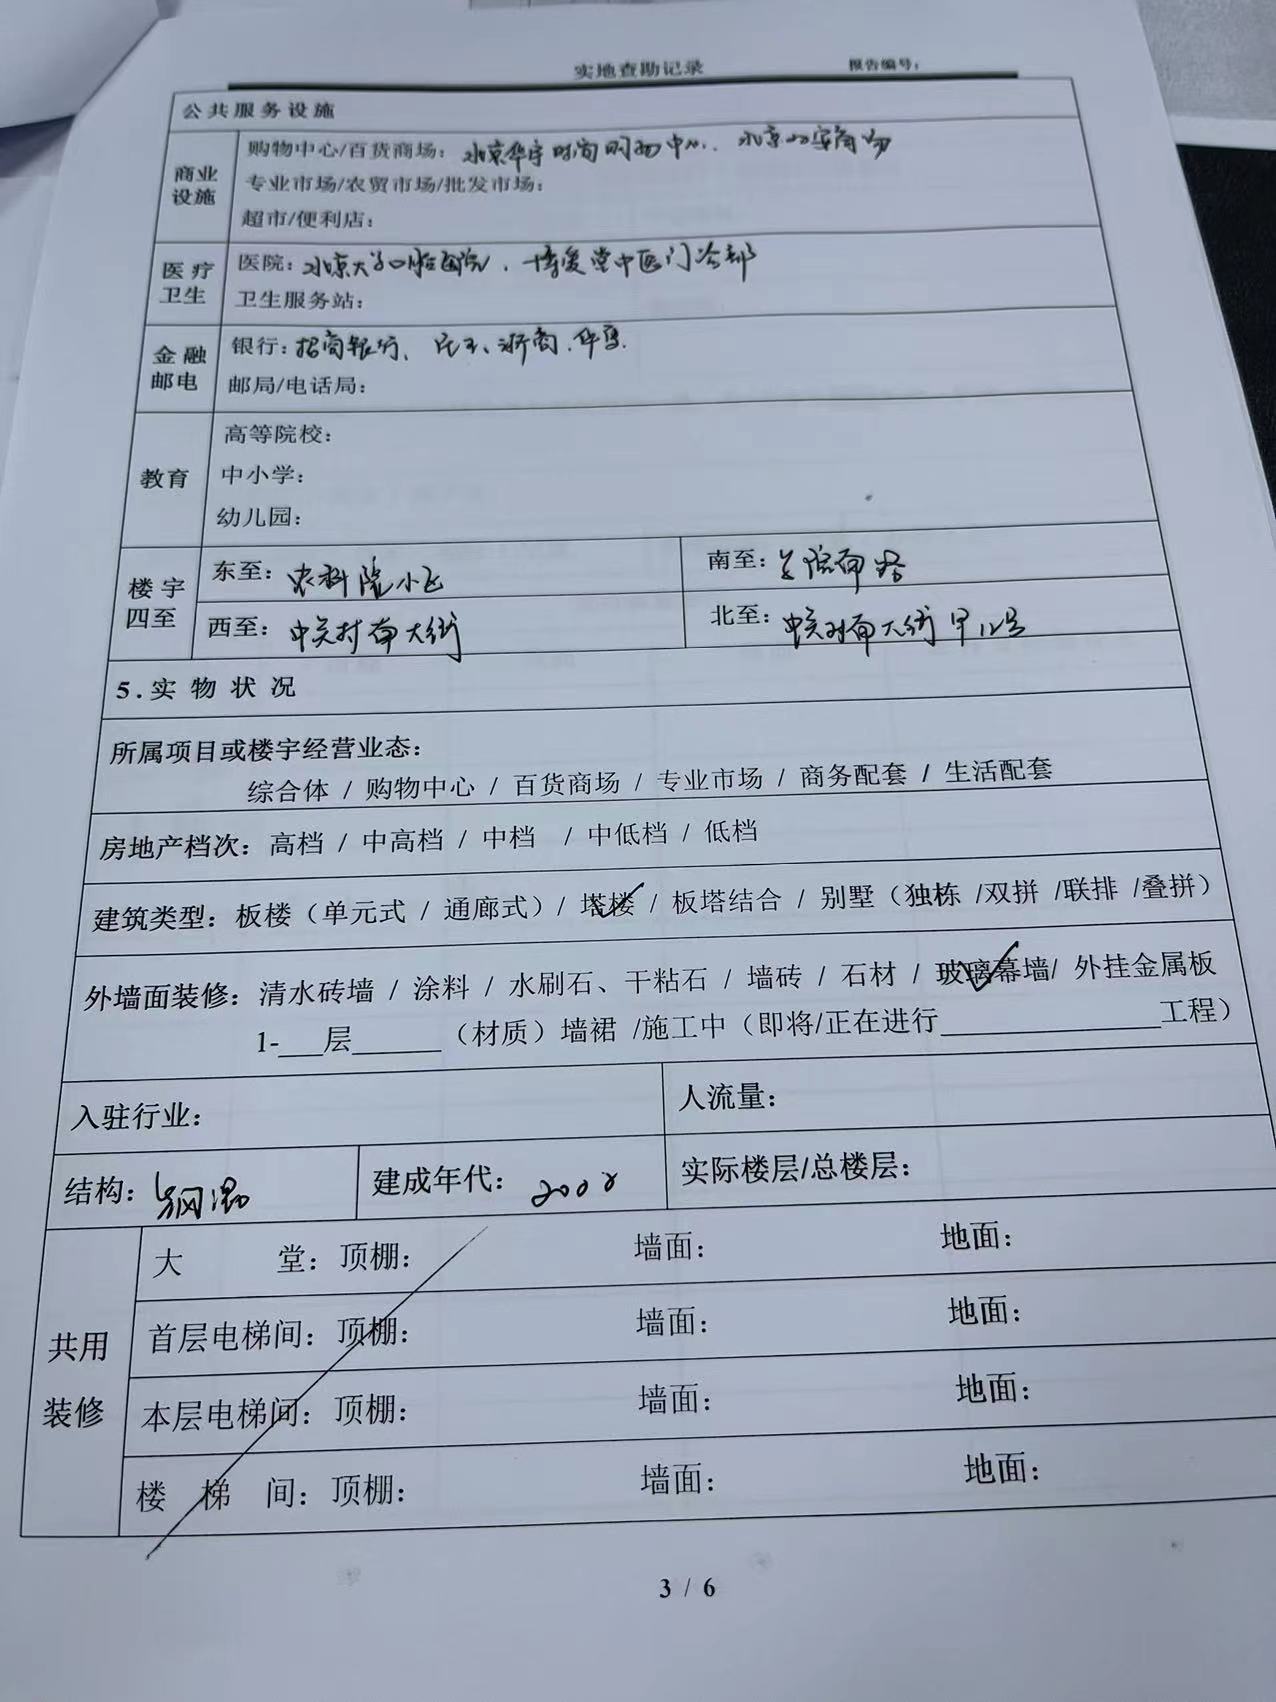 实地查勘记录 报告编号：
公共服务设施
商业设施
购物中心/百货商场：北京华宇时尚购物中心、北京 安商场
专业市场/农贸市场/批发市场：
超市/便利店：
医疗卫生
医院：北京大学口腔医院、 堂中医门诊部
卫生服务站：
金融邮电
银行：招商银行、民生、浙商、华夏
邮局/电话局：
教育
高等院校：
中小学：
幼儿园：
楼宇四至
东至：农科院小区 南至：学院南路
西至：中关村南大街 北至：中关村南大街甲12号
5.实物状况
所属项目或楼宇经营业态：
综合体 / 购物中心 / 百货商场 / 专业市场 / 商务配套 / 生活配套
房地产档次：高档 / 中高档 / 中档 / 中低档 / 低档
建筑类型：板楼（单元式 / 通廊式）/ 塔楼 / 板塔结合 / 别墅（独栋 /双拼 /联排 /叠拼）
外墙面装修：清水砖墙 / 涂料 / 水刷石、干粘石 / 墙砖 / 石材 / 玻璃幕墙/ 外挂金属板
1-___层______（材质）墙裙 /施工中（即将/正在进行_______________工程）
入驻行业： 人流量：
结构：钢混 建成年代： 实际楼层/总楼层：
共用装修
大 堂：顶棚： 墙面： 地面：
首层电梯间：顶棚： 墙面： 地面：
本层电梯间：顶棚： 墙面： 地面：
楼 梯 间：顶棚： 墙面： 地面：
3 / 6